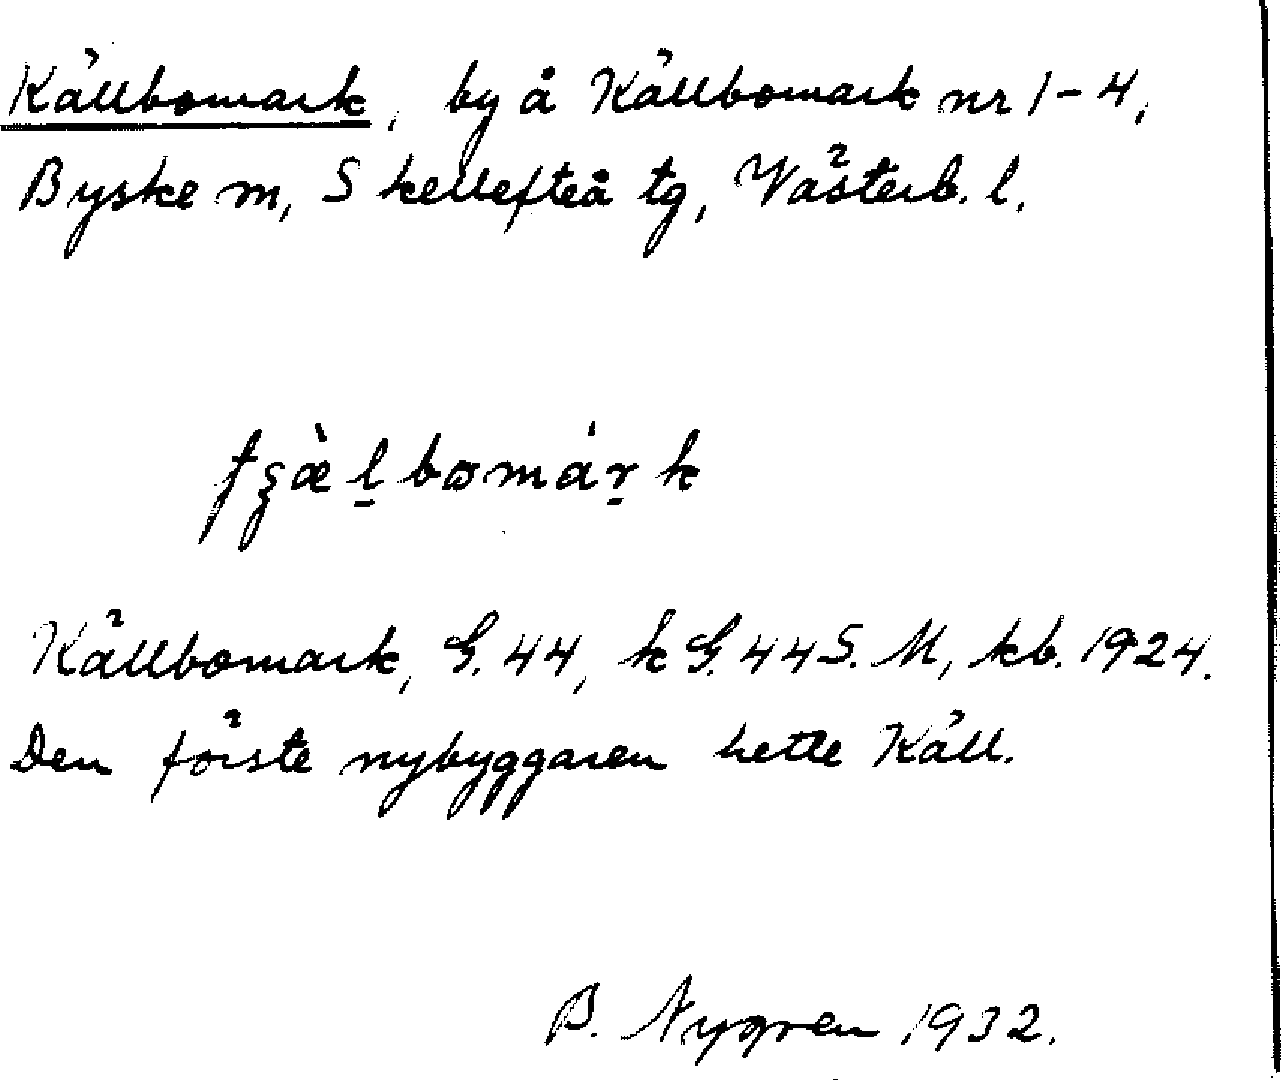 Källbomark, by å Källbomark nr 1-4,
Byske m, Skellefteå tg, Västerb. l.
Källbomark, G. 44, k G. 44 S. M, kb. 1924.
Den förste nybyggaren hette Käll.
B. Nygren 1932.